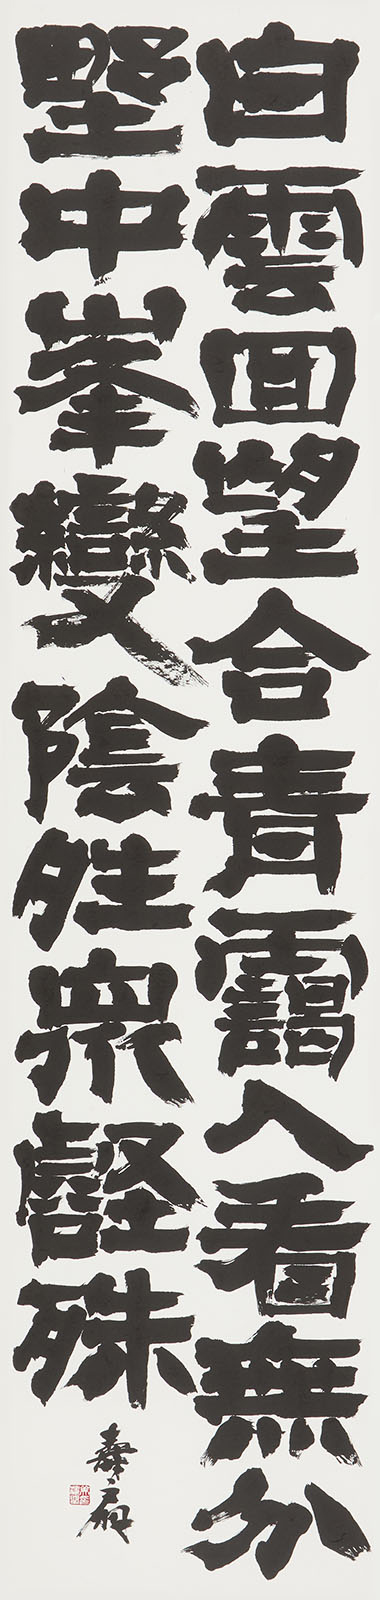 白雲回望合青靄入看無分
野中峯變陰夝衆壑殊